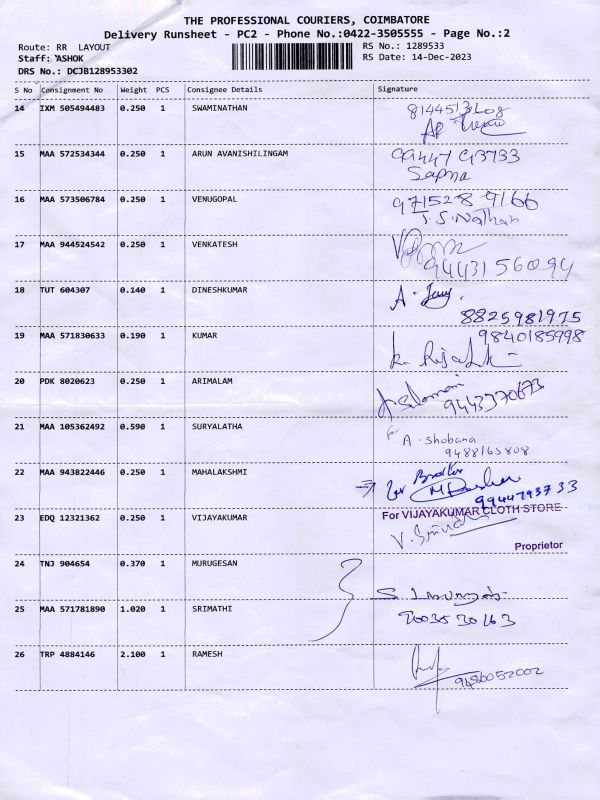 THE PROFESSIONAL COURIERS, COIMBATORE
Delivery Runsheet - PC2 - Phone No.:0422-3505555 - Page No.:2
Route: RR LAYOUT
RS No.: 1289533
Staff: ASHOK
RS Date: 14-Dec-2023
DRS No.: DCJB128953302
S No Consignment No Weight PCS Consignee Details Signature
14 IXM 505494483 0.250 1 SWAMINATHAN
15 MAA 572534344 0.250 1 ARUN AVANISHILINGAM
Sapna
16 MAA 573506784 0.250 1 VENUGOPAL 971528 9166
J.S. Nathan
17 MAA 944524542 0.250 1 VENKATESH
9443156094
18 TUT 604307 0.140 1 DINESHKUMAR
8825981975
19 MAA 571830633 0.190 1 KUMAR 9840185998
20 PDK 8020623 0.250 1 ARIMALAM
9443370673
21 MAA 105362492 0.590 1 SURYALATHA for A. Shobana
9488165808
22 MAA 943822446 0.250 1 MAHALAKSHMI
9944793733
23 EDQ 12321362 0.250 1 VIJAYAKUMAR For VIJAYAKUMAR CLOTH STORE
Proprietor
24 TNJ 904654 0.370 1 MURUGESAN
25 MAA 571781890 1.020 1 SRIMATHI 9003530163
26 TRP 4884146 2.100 1 RAMESH
9486052002